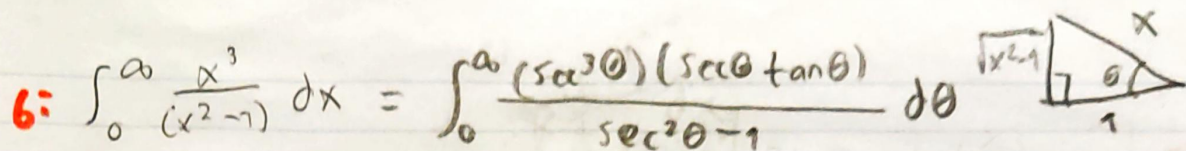 6: ∫₀^∞ x³/(x²-1) dx = ∫₀^∞ (sec³θ)(secθ tanθ)/(sec²θ-1) dθ √(x²-1) x θ 1